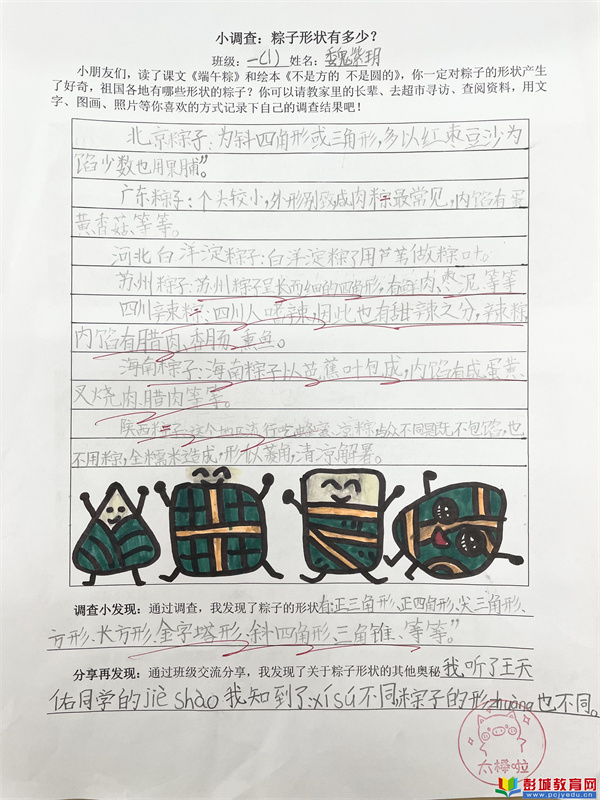 小调查：粽子形状有多少？
班级：一(1) 姓名：魏紫玥
小朋友们，读了课文《端午粽》和绘本《不是方的 不是圆的》，你一定对粽子的形状产生
了好奇，祖国各地有哪些形状的粽子？你可以请教家里的长辈、去超市寻访、查阅资料，用文
字、图画、照片等你喜欢的方式记录下自己的调查结果吧！
北京粽子：为斜四角形或三角形，多以红枣豆沙为
馅少数也用果脯”。
广东粽子：个头较小，外形别致咸肉粽最常见，内馅有蛋
黄、香菇、等等。
河北白洋淀粽子：白洋淀粽子用芦苇做粽叶。
苏州粽子：苏州粽子呈长而细的四角形，有鲜肉、枣泥、等等
四川辣粽：四川人喜辣，因此也有甜辣之分，辣粽
内馅有腊肉、香肠、熏鱼。
海南粽子：海南粽子以芭蕉叶包成，内馅有咸蛋黄、
叉烧肉、腊肉等等。
陕西粽子：这个地区流行吃蜂蜜、凉粽与众不同既不包馅，也
不用粽，全糯米造成，形似菱角，清凉解暑。
调查小发现：通过调查，我发现了粽子的形状有：正三角形、正四角形、尖三角形、
方形、长方形、金字塔形、斜四角形、三角锥、等等。”
分享再发现：通过班级交流分享，我发现了关于粽子形状的其他奥秘我听了王天
佑同学的jiè shào我知到了：xí sú不同粽子的形zhuàng也不同。
太棒啦
彭城教育网
www.pcjyedu.cn